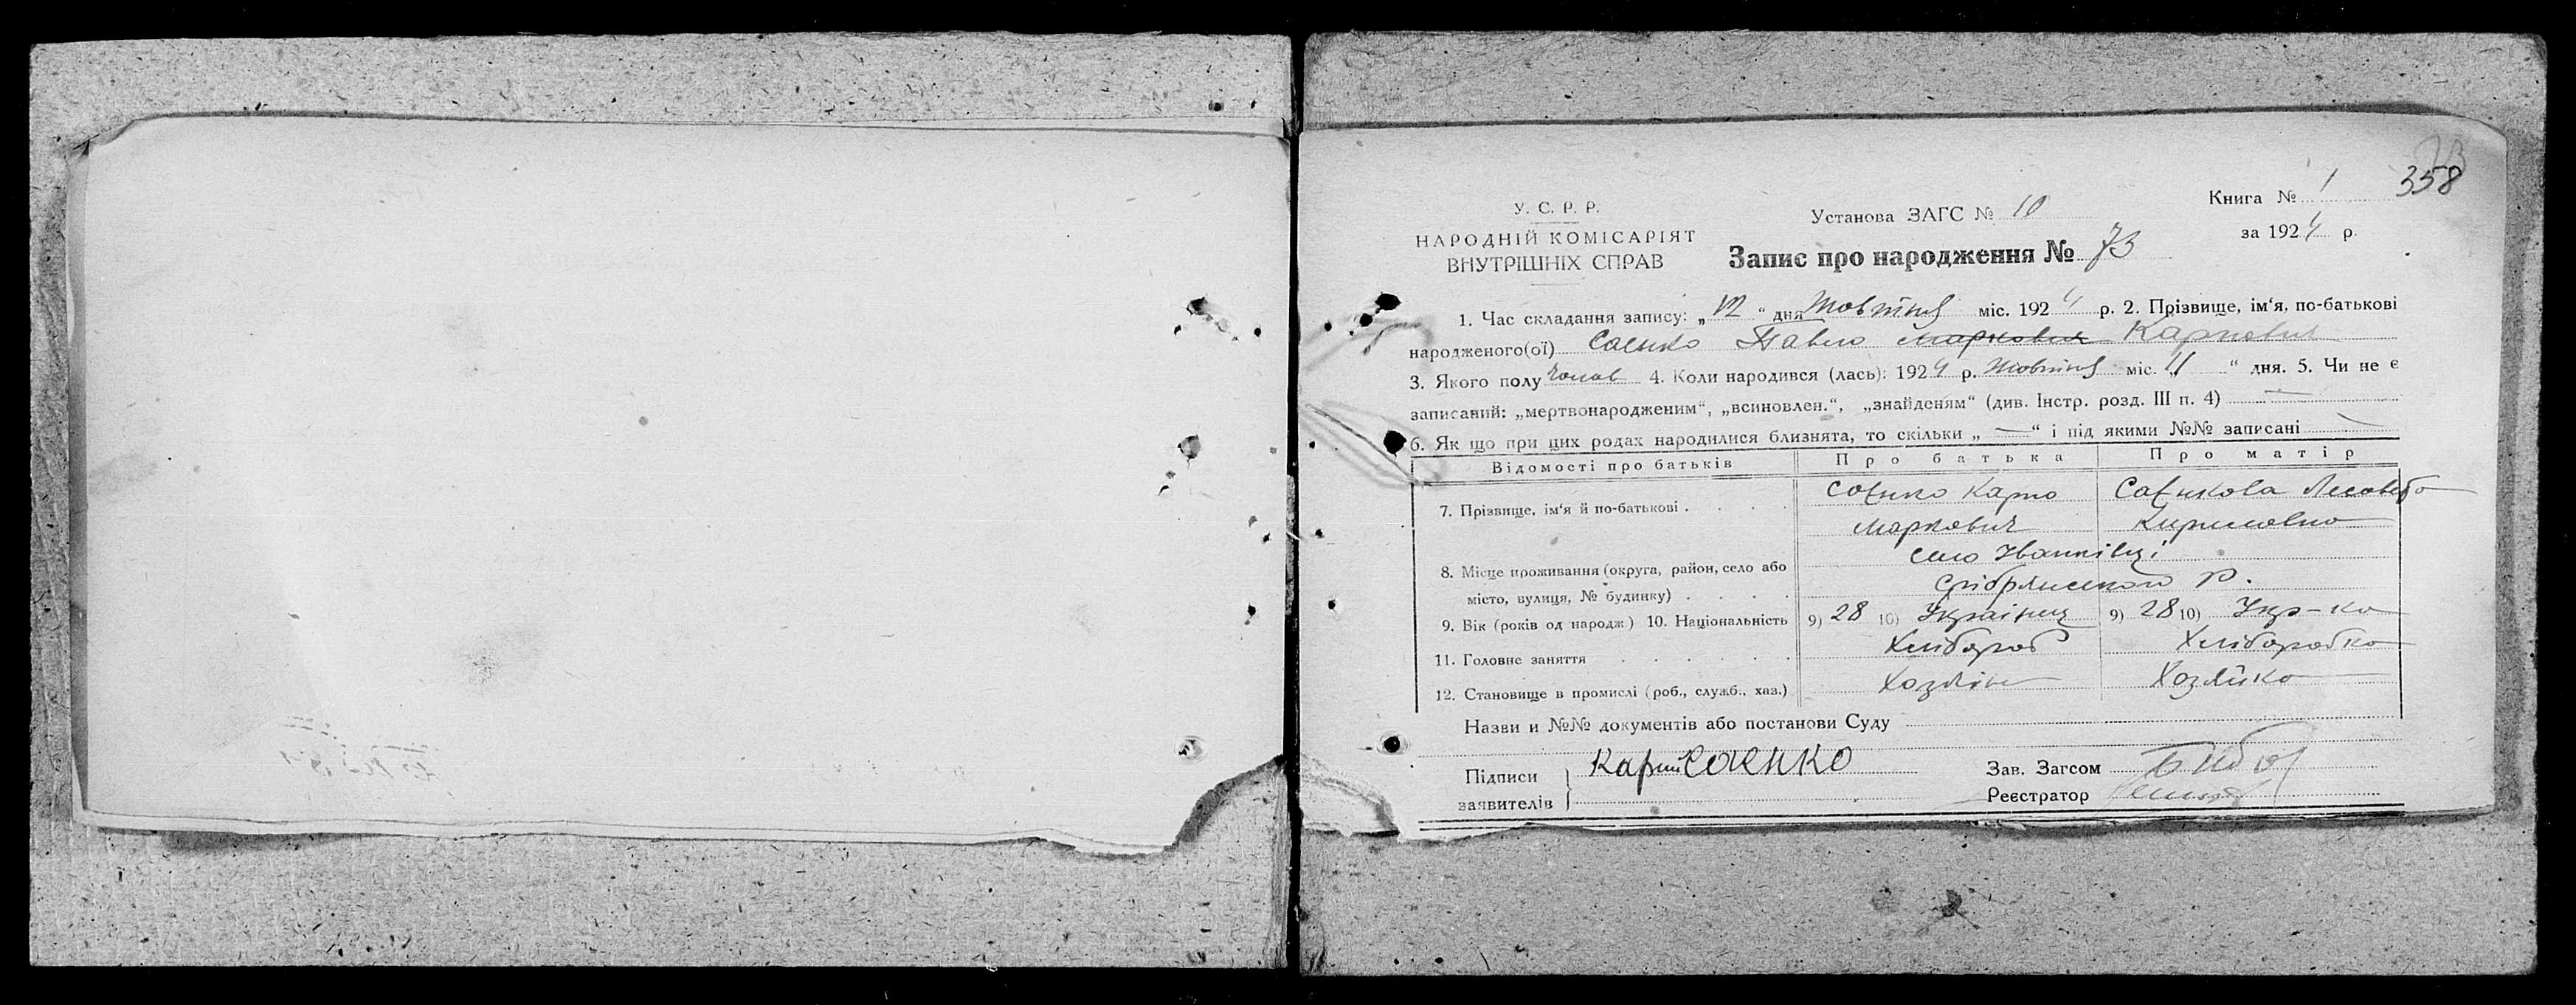 358
У. С. Р. Р.
НАРОДНІЙ КОМІСАРІЯТ
ВНУТРІШНІХ СПРАВ
Установа ЗАГС № 10
Книга № 1
за 1924 р.
Запис про народження № 73
1. Час складання запису: „12“ дня Жовтня міс. 1924 р. 2. Прізвище, ім‘я, по-батькові
народженого(ої) Саенко Павло Маркович Карпович
3. Якого полу чолов 4. Коли народився (лась): 1924 р. Жовтня міс. „11“ дня. 5. Чи не є
записаний: „мертвонародженим“, „всиновлен.“, „знайденям“ (див. Інстр. розд. III п. 4) —
6. Як що при цих родах народилися близнята, то скільки „ — “ і під якими №№ записані —
Відомості про батьків Про батька Про матір
7. Прізвище, ім‘я й по-батькові . . . . Саєнко Карпо Саєнкова
Маркович Кириловна
8. Місце проживання (округа, район, село або село Іванківці
місто, вулиця, № будинку) . . . . Срібрянського р.
9. Вік (років од народж) 10. Національність 9) 28 10) Українец 9) 28 10) Укр-ка
11. Головне заняття . . . . . . Хлібороб Хліборобка
12. Становище в промислі (роб., служб., хаз.) Хозяін Хозяйка
Назви и №№ документів або постанови Суду
Підписи
заявителів
Карпо Саенко
Зав. Загсом
Реєстратор